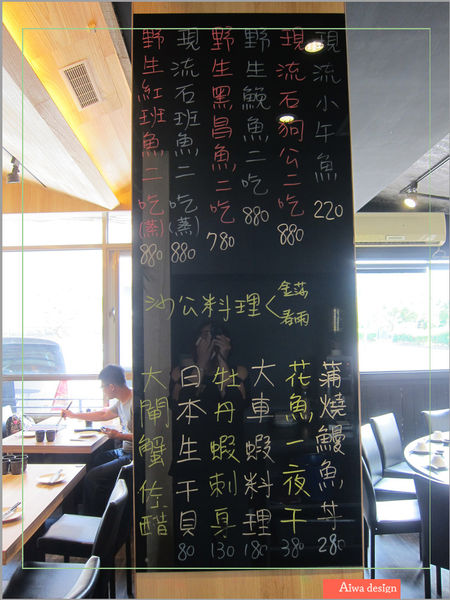 現流小午魚 220
現流石狗公二吃 880
野生鮸魚二吃 880
野生黑昌魚二吃 780
現流石班魚二吃(蒸) 880
野生紅班魚二吃(蒸) 880
沙公料理
蒲燒鰻魚丼 280
花魚一夜干 380
大車蝦料理 180
牡丹蝦刺身 130
日本生干貝 80
大閘蟹佐醋
Aiwa design